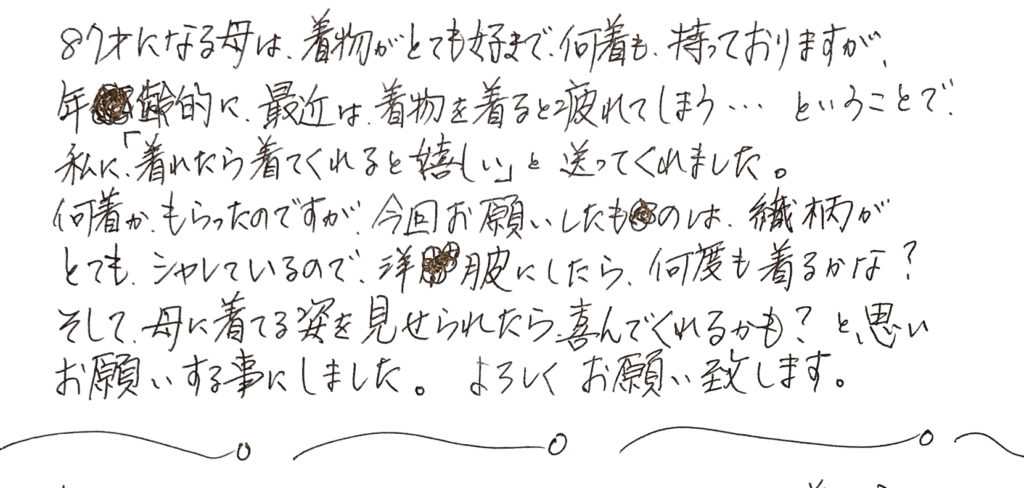 87才になる母は、着物がとても好きで、何着も、持っておりますが、
年齢的に、最近は、着物を着ると疲れてしまう… ということで、
私に、「着れたら着てくれると嬉しい」と送ってくれました。
何着か、もらったのですが、今回お願いしたものは、織柄が
とても、シャレているので、洋服にしたら、何度も着るかな？
そして、母に着てる姿を見せられたら、喜んでくれるかも？と、思い
お願いする事にしました。 よろしくお願い致します。